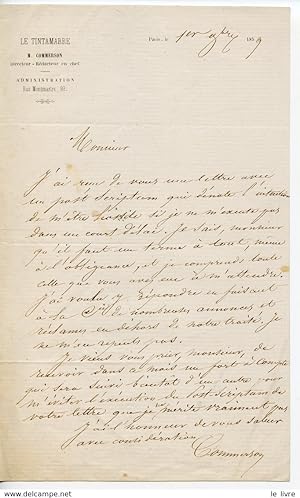 LE TINTAMARRE
M. COMMERSON
Directeur - Rédacteur en chef
ADMINISTRATION
Rue Montmartre,
Paris, le 1er 9bre 1859
Monsieur
J'ai reçu de vous une lettre avec
un post Scriptum qui dénote l'intention
de m'être hostile si je ne m'exécute pas
dans un court délai. Je sais, monsieur
qu'il faut un terme à tout, même
à l'obligeance, et je comprends toute
celle que vous avez eue à m'attendre.
J'ai voulu y répondre en faisant
à la Cie de nombreuses annonces et
réclames en dehors de notre traité. Je
ne m'en repens pas.
Je viens vous prier, monsieur, de
recevoir dans mois un fort à compte
qui sera suivi bientôt d'un autre pour
m'éviter l'exécution du Post-scriptum de
votre lettre que je ne mérite vraiment pas
J'ai l'honneur de vous saluer
avec considération
Commerson
le livre